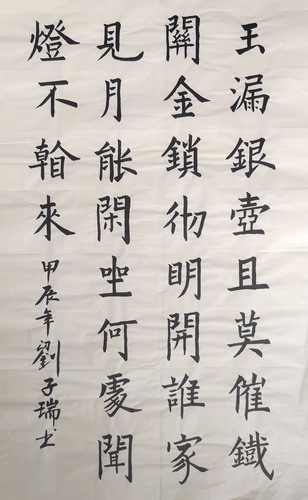 玉漏銀壺且莫催鐵
關金鎖彻明開誰家
見月能閑坐何處聞
燈不看來 甲辰年劉子瑞书